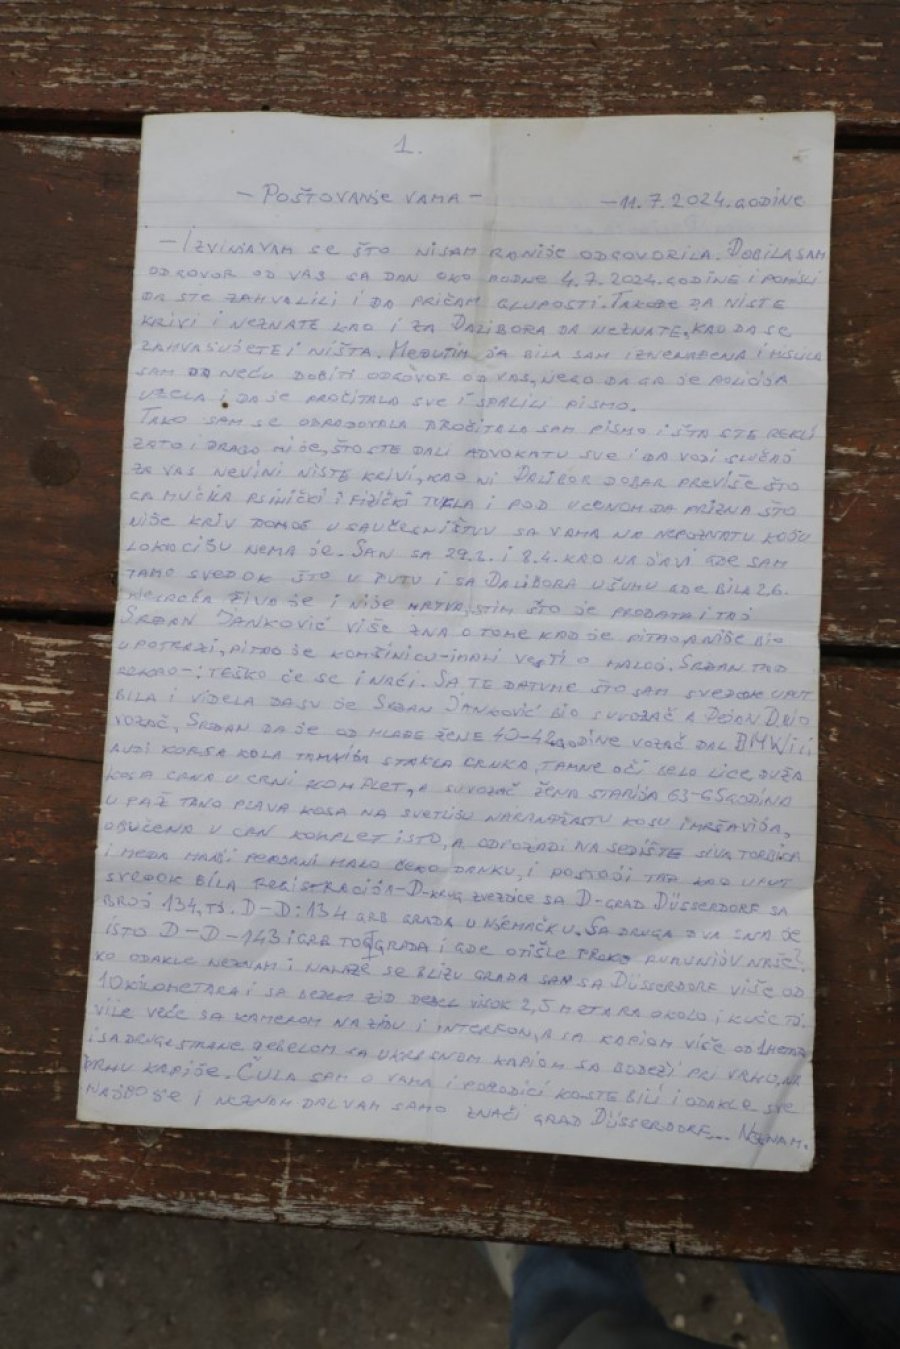 1.
- POŠTOVANJE VAMA - - 11.7.2024. GODINE
- IZVINJAVAM SE ŠTO NISAM RANIJE ODGOVORILA. DOBILA SAM
ODGOVOR OD VAS SA DAN OKO PODNE 4.7.2024. GODINE I POMISLI
DA STE ZAHVALILI I DA PRIČAM GLUPOSTI. TAKOĐE DA NISTE
KRIVI I NEZNATE KAO I ZA DALIBORA DA NEZNATE, KAO DA SE
ZAHVALJUJETE I NIŠTA. MEĐUTIM JA BILA SAM IZNENAĐENA I MISLILA
SAM DA NEĆU DOBITI ODGOVOR OD VAS, NEGO DA GA JE POLICIJA
UZELA I DA JE PROČITALA SVE I SPALILI PISMO.
TAKO SAM SE OBRADOVALA PROČITALA SAM PISMO I ŠTA STE REKLI
ZATO I DRAGO MI JE, ŠTO STE DALI ADVOKATU SVE I DA VODI SLUČAJ
ZA VAS NEVINI NISTE KRIVI, KAO NI DALIBOR DOBAR PREVIŠE ŠTO
GA MUČILA PSIHIČKI I FIZIČKI TUKLA I POD UCENOM DA PRIZNA ŠTO
NIJE KRIV U SAUČESNIŠTVU SA VAMA NA NEPOZNATU KOJU
LOKACIJU NEMA JE. SAN SA 29.2. I 8.4. KAO NA JAVI GDE SAM
TAMO SVEDOK ŠTO U PUTU I SA DALIBORA U ŠUMU GDE BILA 26.
ŽIVA JE I NIJE MRTVA, STIM ŠTO JE PRODATA I TAJ
SRĐAN JANKOVIĆ VIŠE ZNA O TOME KAD JE PITAO, A NIJE BIO
U POTRAZI, PITAO JE KOMŠINICU - IMALI VESTI O MALOJ. SRĐAN TAD
REKAO - : TEŠKO ĆE SE I NAĆI. SA TE DATUME ŠTO SAM SVEDOK UPUT
BILA I VIDELA DA SU JE SRĐAN JANKOVIĆ BIO SUVOZAČ A DEJAN D. BIO
VOZAČ, SRĐAN DA JE OD MLAĐE ŽENE 40-42 GODINE VOZAČ DAL BMW ILI
AUDI KOLA TAMNIJA STAKLA CRNKA, TAMNE OČI LICE, DUŽA
KOSA CRNA U CRNI KOMPLET, A SUVOZAČ ŽENA STARIJA 63-65 GODINA
U PAŽ TAMO PLAVA KOSA NA SVETLIJU NARANDŽASTU KOSU I MRŠAVIJA,
OBUČENA U CRN KOMPLET ISTO, A ODPOZADI NA SEDIŠTE SIVA TORBICA
I MEDA MANJI MALO DANKU, I POSTOJI TAD KAO UPUT
SVEDOK BILA REGISTRACIJA - D - KRUG ZVEZDICE SA D - GRAD DÜSSERDORF SA
BROJ 134, TJ. D-D: 134 GRB GRADA U NJEMAČKU. SA DRUGA DVA SNA JE
ISTO D-D-143 I GRB TOG GRADA I GDE OTIŠLE PREKO RUMUNIJU
KO ODAKLE NEZNAM I NALAZE SE BLIZU GRADA SAM SA DÜSSERDORF VIŠE OD
10 KILOMETARA I SA ZID VISOK 2,5 METARA OKOLO, KUĆE TJ.
VILE VEĆE SA KAMEROM NA ZIDU I INTERFON, A SA KAPIOM VIŠE OD 1 METAR
I SA DRUGE STRANE DEBELOM SA UKRASNOM KAPIOM SA BODEŽI PRI VRHU, NA
VRHU KAPIJE. ČULA SAM O VAMA I PORODICI KO STE BILI I ODAKLE SVE
NAJBOLJE I NEZNAM DAL VAM SAMO ZNAČI GRAD DÜSSERDORF... NEZNAM.